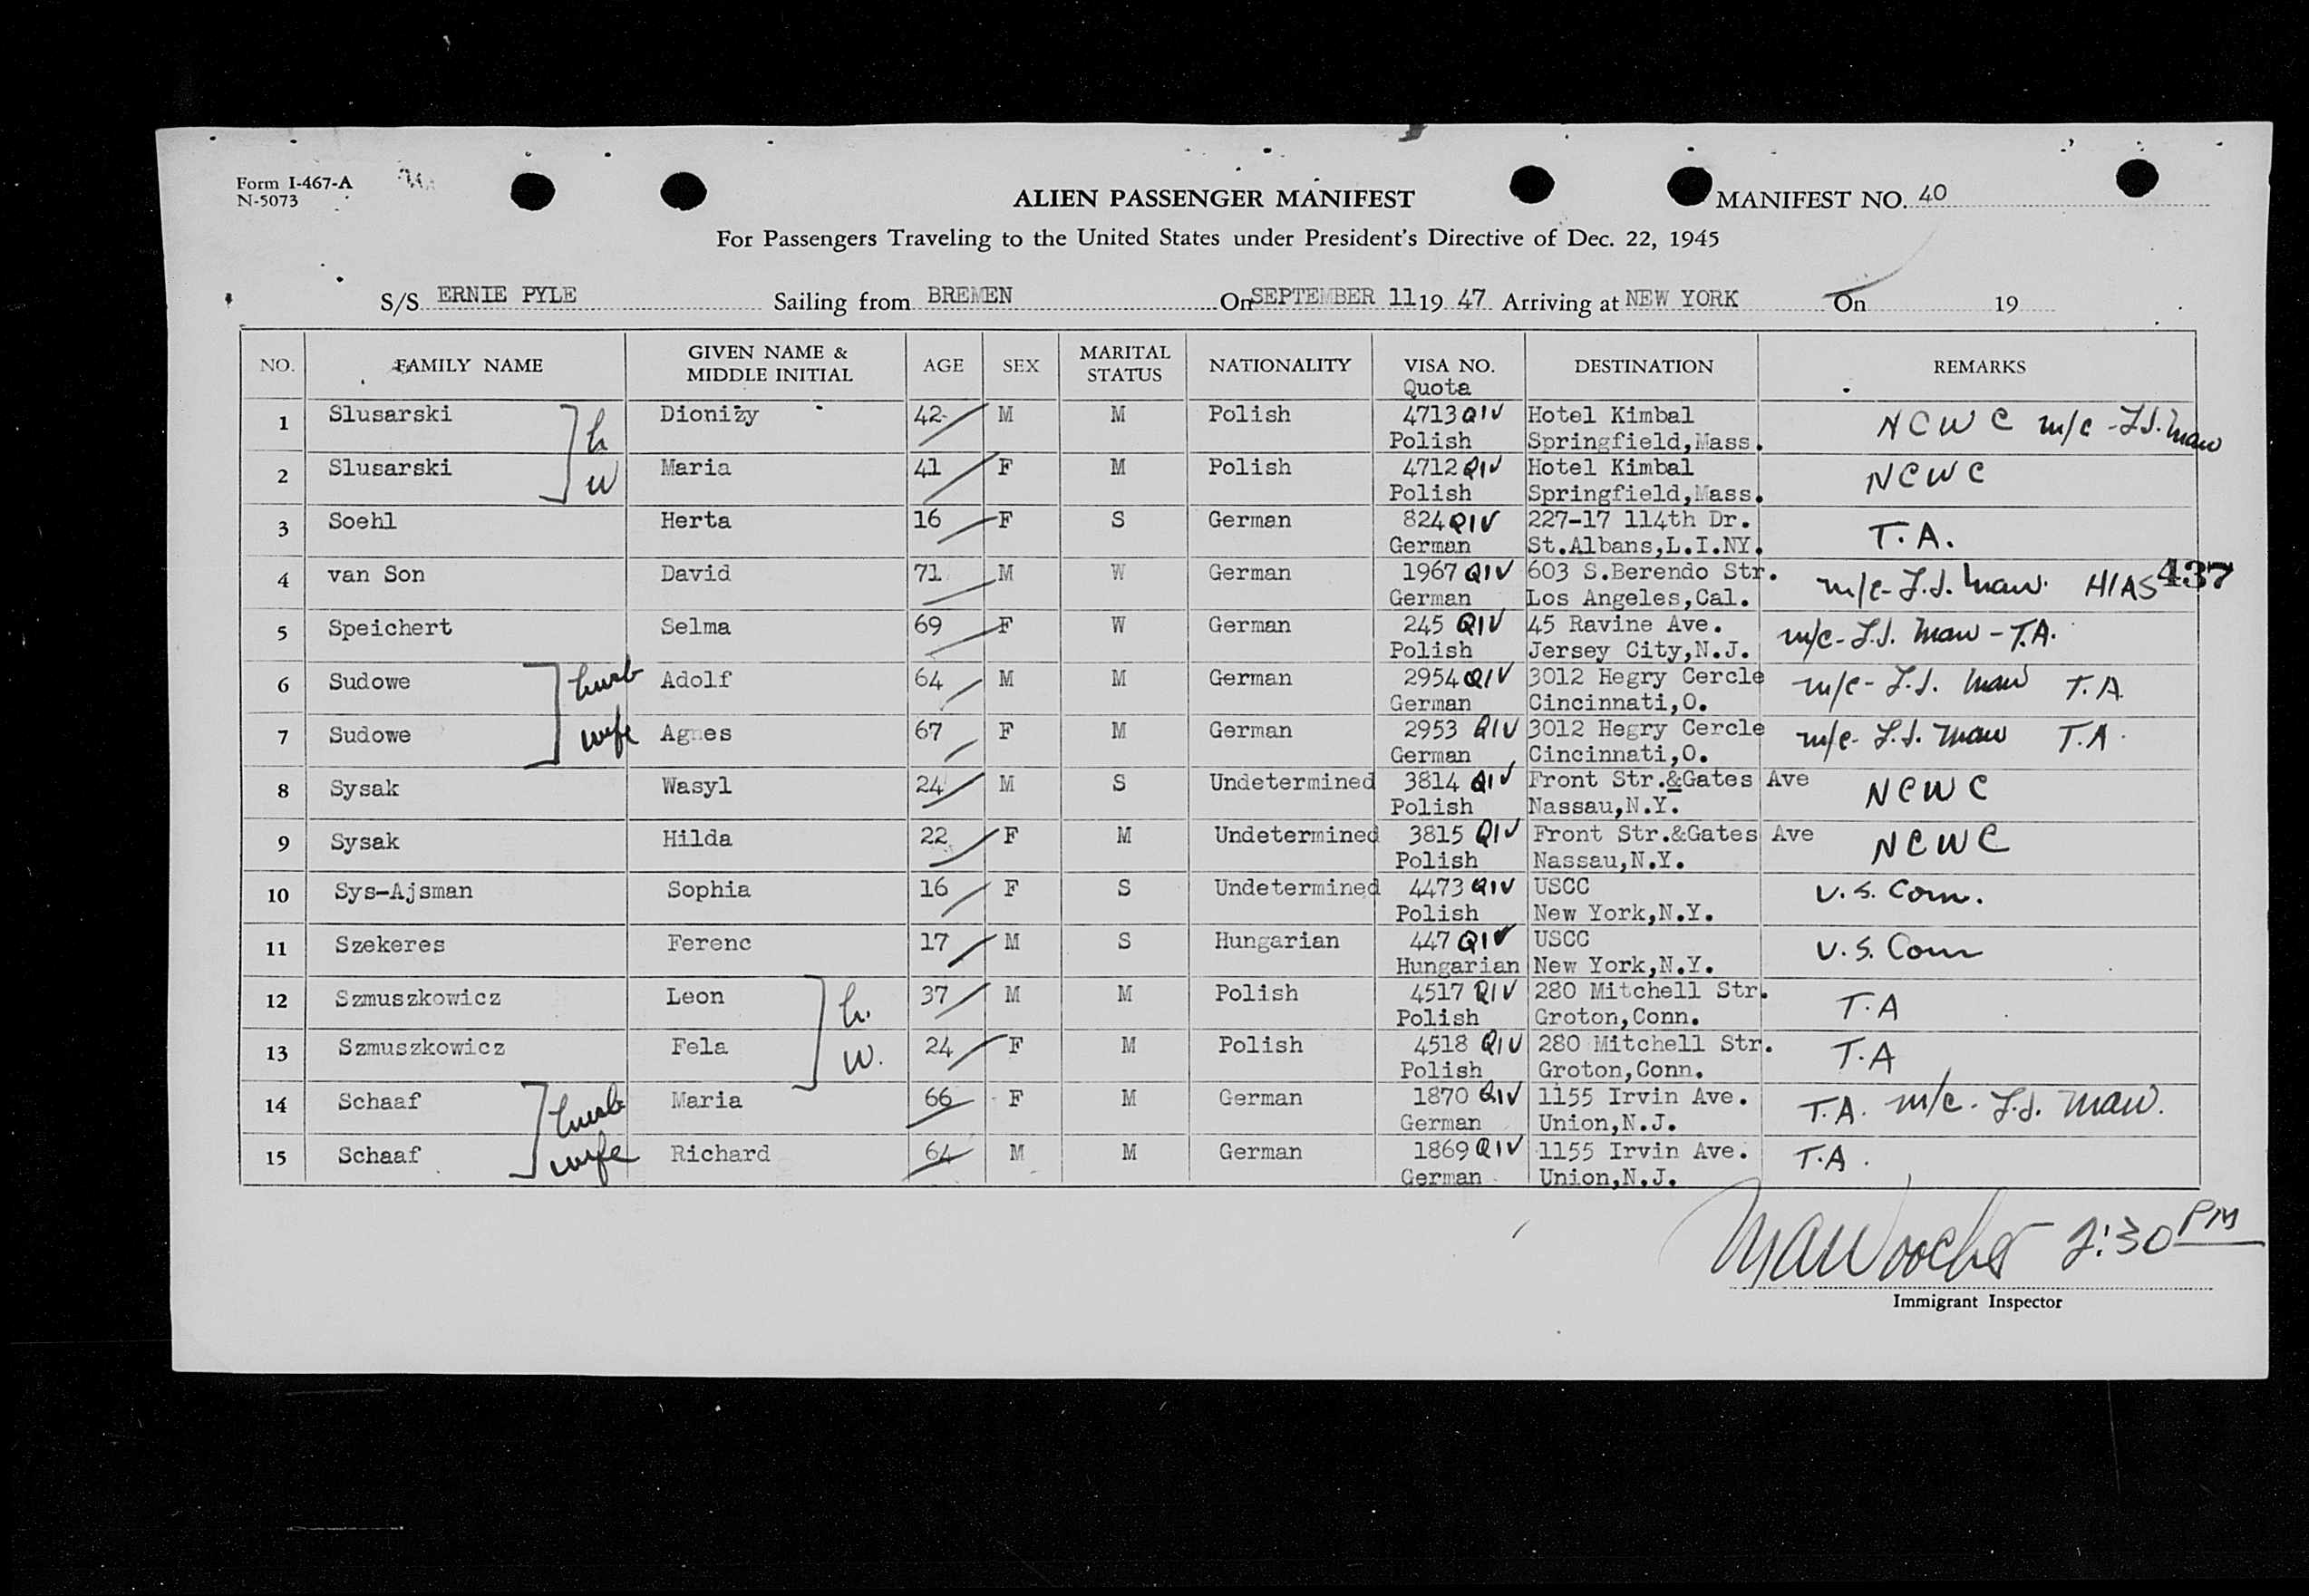 Form I-467-A
N-5073
ALIEN PASSENGER MANIFEST
MANIFEST NO. 40
For Passengers Traveling to the United States under President's Directive of Dec. 22, 1945
S/S ERNIE PYLE Sailing from BREMEN On SEPTEMBER 11 19 47 Arriving at NEW YORK On 19
NO. FAMILY NAME GIVEN NAME & MIDDLE INITIAL AGE SEX MARITAL STATUS NATIONALITY VISA NO. Quota DESTINATION REMARKS
1 Slusarski h Dionizy 42 M M Polish 4713 QIV Hotel Kimbal NCWC m/c - J.J. Maw
Polish Springfield,Mass.
2 Slusarski W Maria 41 F M Polish 4712 QIV Hotel Kimbal NCWC
Polish Springfield,Mass.
3 Soehl Herta 16 F S German 824 QIV 227-17 114th Dr. T.A.
German St.Albans,L.I.NY.
4 van Son David 71 M W German 1967 QIV 603 S.Berendo Str. m/c - J.J. Maw. HIAS 437
German Los Angeles,Cal.
5 Speichert Selma 69 F W German 245 QIV 45 Ravine Ave. m/c - J.J. Maw - T.A.
Polish Jersey City,N.J.
6 Sudowe husb Adolf 64 M M German 2954 QIV 3012 Hegry Cercle m/c - J.J. Maw T.A.
German Cincinnati,O.
7 Sudowe wife Agnes 67 F M German 2953 QIV 3012 Hegry Cercle m/c - J.J. Maw T.A.
German Cincinnati,O.
8 Sysak Wasyl 24 M S Undetermined 3814 QIV Front Str.&Gates Ave NCWC
Polish Nassau,N.Y.
9 Sysak Hilda 22 F M Undetermined 3815 QIV Front Str.&Gates Ave NCWC
Polish Nassau,N.Y.
10 Sys-Ajsman Sophia 16 F S Undetermined 4473 QIV USCC U.S. Com.
Polish New York,N.Y.
11 Szekeres Ferenc 17 M S Hungarian 447 QIV USCC U.S. Com
Hungarian New York,N.Y.
12 Szmuszkowicz Leon h. 37 M M Polish 4517 QIV 280 Mitchell Str. T.A
Polish Groton,Conn.
13 Szmuszkowicz Fela W. 24 F M Polish 4518 QIV 280 Mitchell Str. T.A
Polish Groton,Conn.
14 Schaaf husb Maria 66 F M German 1870 QIV 1155 Irvin Ave. T.A. m/c - J.J. Maw.
German Union,N.J.
15 Schaaf wife Richard 64 M M German 1869 QIV 1155 Irvin Ave. T.A.
German Union,N.J.
2:30 PM
Immigrant Inspector